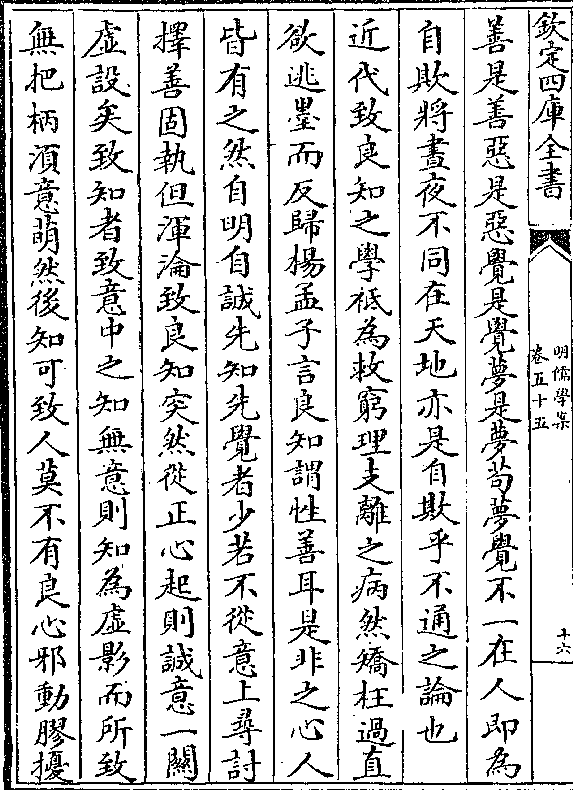 欽定四庫全書
明儒學案
卷五十五
十六
善是善惡是惡覺是覺夢是夢苟夢覺不一在人即為
自欺將晝夜不同在天地亦是自欺乎不通之論也
近代致良知之學祗為救窮理支離之病然矯枉過直
欲逃墨而反歸楊孟子言良知謂性善耳是非之心人
皆有之然自明自誠先知先覺者少若不從意上尋討
擇善固執但渾淪致良知突然從正心起則誠意一關
虛設矣致知者致意中之知無意則知為虛影而所致
無把柄湏意萌然後知可致人莫不有良心邪動膠擾